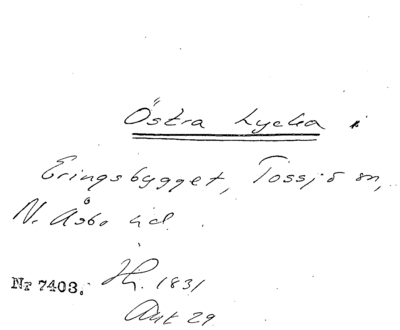 Östra Lycka
Eringsbygget, Tossjö sn,
N. Åsbo hd.
Nr 7403. Jh. 1831
Akt 29